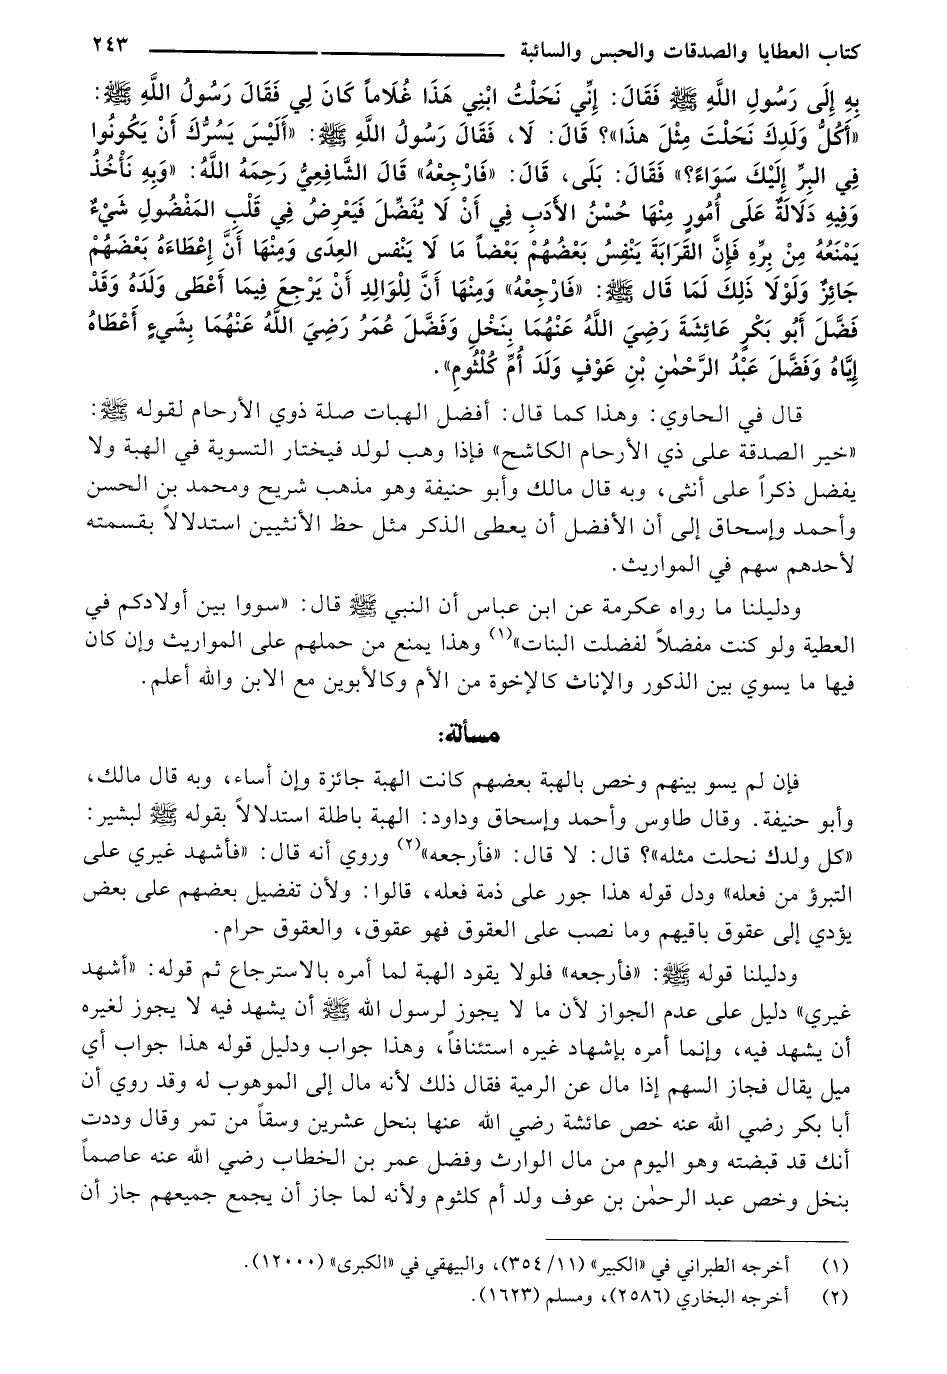 كتاب العطايا والصدقات والحبس والسائبة ٢٤٣
بِهِ إِلَى رَسُولِ اللَّهِ ﷺ فَقَالَ: إِنِّي نَحَلْتُ ابْنِي هَذَا غُلَاماً كَانَ لِي فَقَالَ رَسُولُ اللَّهِ ﷺ:
«أَكُلُّ وَلَدِكَ نَحَلْتَ مِثْلَ هذَا»؟ قَالَ: لَا، فَقَالَ رَسُولُ اللَّهِ ﷺ: «أَلَيْسَ يَسُرُّكَ أَنْ يَكُونُوا
فِي البِرِّ إِلَيْكَ سَوَاءً؟» فَقَالَ: بَلَى، قَالَ: «فَارْجِعْهُ» قَالَ الشَّافِعِيُّ رَحِمَهُ اللَّهُ: «وَبِهِ نَأْخُذُ
وَفِيهِ دَلَالَةٌ عَلَى أُمُورٍ مِنْهَا حُسْنُ الأَدَبِ فِي أَنْ لَا يُفَضِّلَ فَيَعْرِضُ فِي قَلْبِ المَفْضُولِ شَيْءٌ
يَمْنَعُهُ مِنْ بِرِّهِ فَإِنَّ القَرَابَةَ يَنْفِسُ بَعْضُهُمْ بَعْضاً مَا لَا يَنْفس العِدَى وَمِنْهَا أَنَّ إِعْطَاءَهُ بَعْضَهُمْ
جَائِزٌ وَلَوْلَا ذَلِكَ لَمَا قَال ﷺ: «فَارْجِعْهُ» وَمِنْهَا أَنَّ لِلْوَالِدِ أَنْ يَرْجِعَ فِيمَا أَعْطَى وَلَدَهُ وَقَدْ
فَضَّلَ أَبُو بَكْرٍ عَائِشَةَ رَضِيَ اللَّهُ عَنْهُمَا بِنَخْلٍ وَفَضَّلَ عُمَرُ رَضِيَ اللَّهُ عَنْهُمَا بِشَيءٍ أَعْطَاهُ
إِيَّاهُ وَفَضَّلَ عَبْدُ الرَّحْمٰنِ بْنِ عَوْفٍ وَلَدَ أُمِّ كُلْثُومِ».
قال في الحاوي: وهذا كما قال: أفضل الهبات صلة ذوي الأرحام لقوله ﷺ:
«خير الصدقة على ذي الأرحام الكاشح» فإذا وهب لولد فيختار التسوية في الهبة ولا
يفضل ذكراً على أنثى، وبه قال مالك وأبو حنيفة وهو مذهب شريح ومحمد بن الحسن
وأحمد وإسحاق إلى أن الأفضل أن يعطى الذكر مثل حظ الأنثيين استدلالاً بقسمته
لأحدهم سهم في المواريث.
ودليلنا ما رواه عكرمة عن ابن عباس أن النبي ﷺ قال: «سووا بين أولادكم في
العطية ولو كنت مفضلاً لفضلت البنات»(١) وهذا يمنع من حملهم على المواريث وإن كان
فيها ما يسوي بين الذكور والإناث كالإخوة من الأم وكالأبوين مع الابن والله أعلم.
مسألة:
فإن لم يسو بينهم وخص بالهبة بعضهم كانت الهبة جائزة وإن أساء، وبه قال مالك،
وأبو حنيفة. وقال طاوس وأحمد وإسحاق وداود: الهبة باطلة استدلالاً بقوله ﷺ لبشير:
«كل ولدك نحلت مثله»؟ قال: لا قال: «فأرجعه»(٢) وروي أنه قال: «فأشهد غيري على
التبرؤ من فعله» ودل قوله هذا جور على ذمة فعله، قالوا: ولأن تفضيل بعضهم على بعض
يؤدي إلى عقوق باقيهم وما نصب على العقوق فهو عقوق، والعقوق حرام.
ودليلنا قوله ﷺ: «فأرجعه» فلولا يقود الهبة لما أمره بالاسترجاع ثم قوله: «أشهد
غيري» دليل على عدم الجواز لأن ما لا يجوز لرسول الله ﷺ أن يشهد فيه لا يجوز لغيره
أن يشهد فيه، وإنما أمره بإشهاد غيره استئنافاً، وهذا جواب ودليل قوله هذا جواب أي
ميل يقال فجاز السهم إذا مال عن الرمية فقال ذلك لأنه مال إلى الموهوب له وقد روي أن
أبا بكر رضي الله عنه خص عائشة رضي الله عنها بنحل عشرين وسقاً من تمر وقال وددت
أنك قد قبضته وهو اليوم من مال الوارث وفضل عمر بن الخطاب رضي الله عنه عاصماً
بنخل وخص عبد الرحمٰن بن عوف ولد أم كلثوم ولأنه لما جاز أن يجمع جميعهم جاز أن
(١) أخرجه الطبراني في «الكبير» (١١/ ٣٥٤)، والبيهقي في «الكبرى» (١٢٠٠٠).
(٢) أخرجه البخاري (٢٥٨٦)، ومسلم (١٦٢٣).